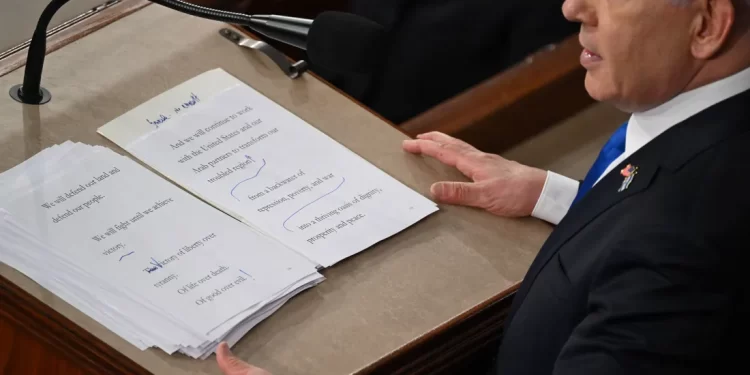 We will defend our land and
defend our people.
We will fight until we achieve
victory.
Victory of liberty over
tyranny.
Of life over death.
Of good over evil!
And we will continue to work
with the United States and our
Arab partners to transform our
troubled region
from a backwater of
repression, poverty, and war
into a thriving oasis of dignity,
prosperity and peace.